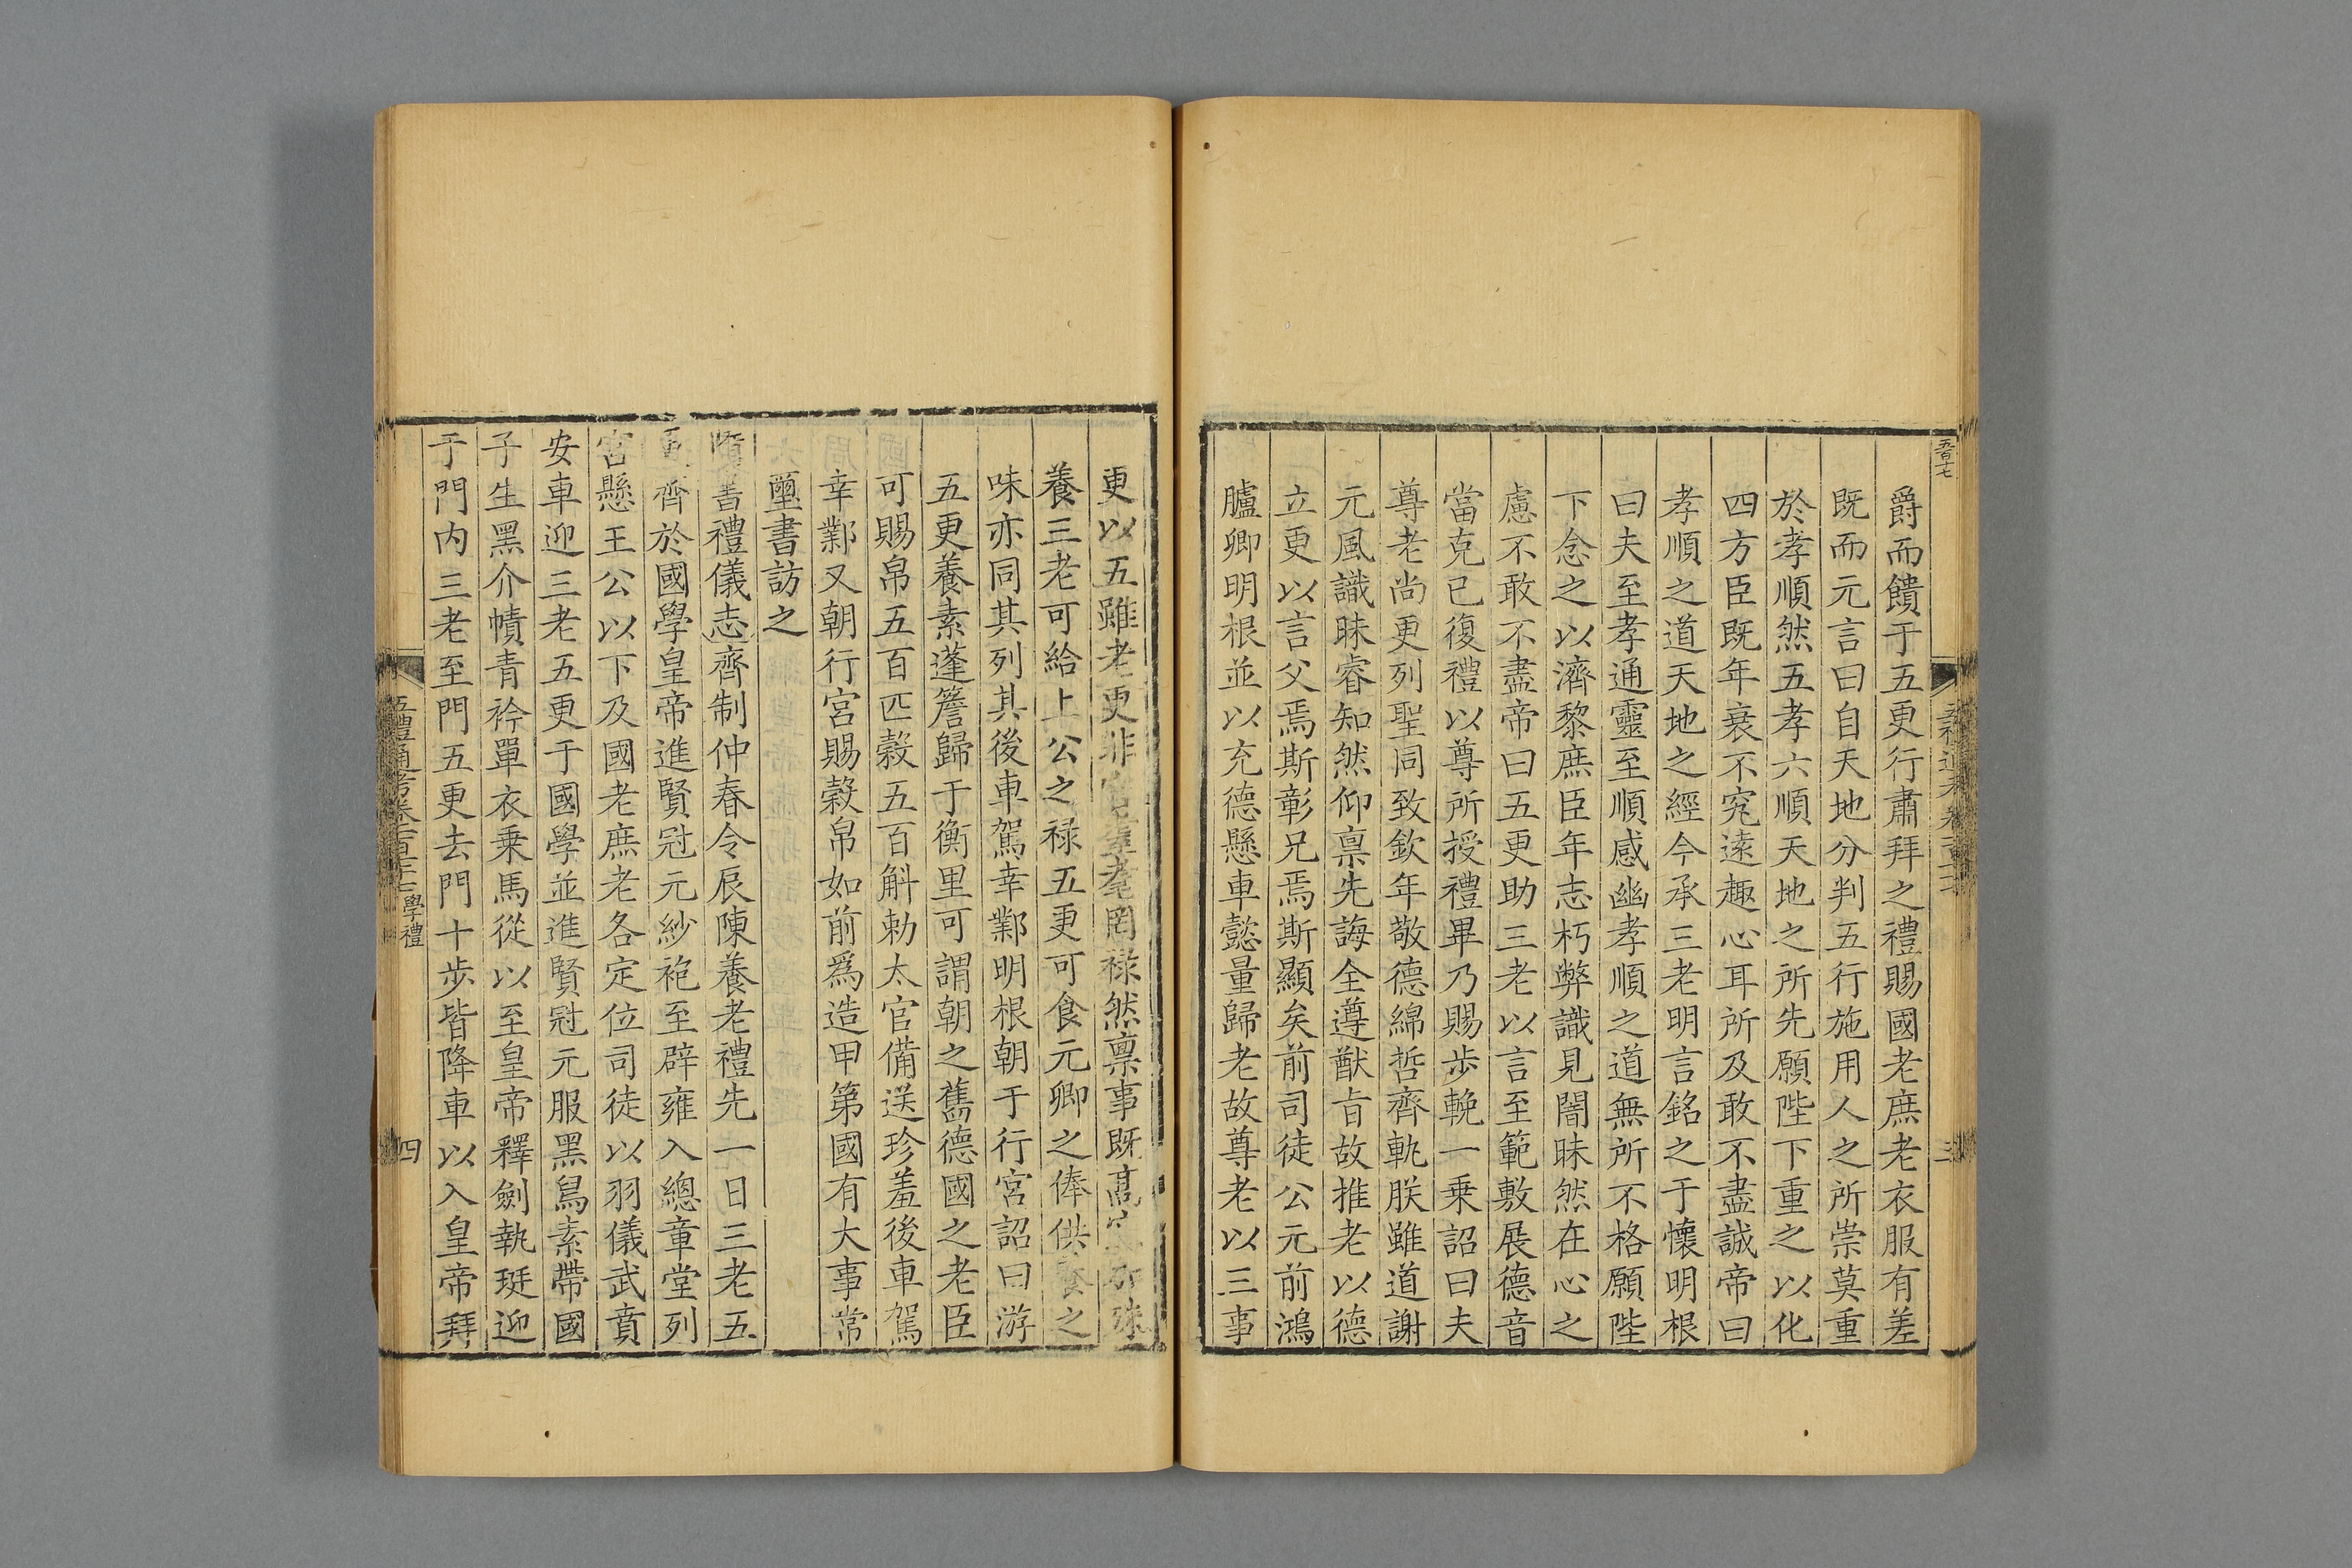 爵而饋于五更行肅拜之禮賜國老庶老衣服有差
既而元言曰自天地分判五行施用人之所崇莫重
於孝順然五孝六順天地之所先願陛下重之以化
四方臣既年衰不究遠趣心耳所及敢不盡誠帝曰
孝順之道天地之經今承三老明言銘之于懷明根
曰夫至孝通靈至順感幽孝順之道無所不格願陛
下念之以濟黎庶臣年志朽弊識見闇昧然在心之
慮不敢不盡帝曰五更助三老以言至範敷展德音
當克已復禮以尊所授禮畢乃賜步輓一乗詔曰夫
尊老尚更列聖同致欽年敬德綿哲齊軌朕雖道謝
元風識昧睿知然仰禀先誨全遵猷旨故推老以德
立更以言父焉斯彰兄焉斯顯矣前司徒公元前鴻
臚卿明根並以充德懸車懿量歸老故尊老以三事
更以五雖老更非官耄耋罔祿然禀事既高
養三老可給上公之祿五更可食元卿之俸供養之
味亦同其列其後車駕幸鄴明根朝于行宮詔曰游
五更養素蓬簷歸于衡里可謂朝之舊德國之老臣
可賜帛五百匹穀五百斛勅太官備送珍羞後車駕
幸鄴又朝行宮賜穀帛如前爲造甲第國有大事常
璽書訪之
隋書禮儀志齊制仲春令辰陳養老禮先一日三老五
更齊於國學皇帝進賢冠元紗袍至辟雍入總章堂列
宮懸王公以下及國老庶老各定位司徒以羽儀武賁
安車迎三老五更于國學並進賢冠元服黑舃素帶國
子生黑介幘青衿單衣乗馬從以至皇帝釋劍執珽迎
于門内三老至門五更去門十步皆降車以入皇帝拜
五禮通考卷 學禮
四